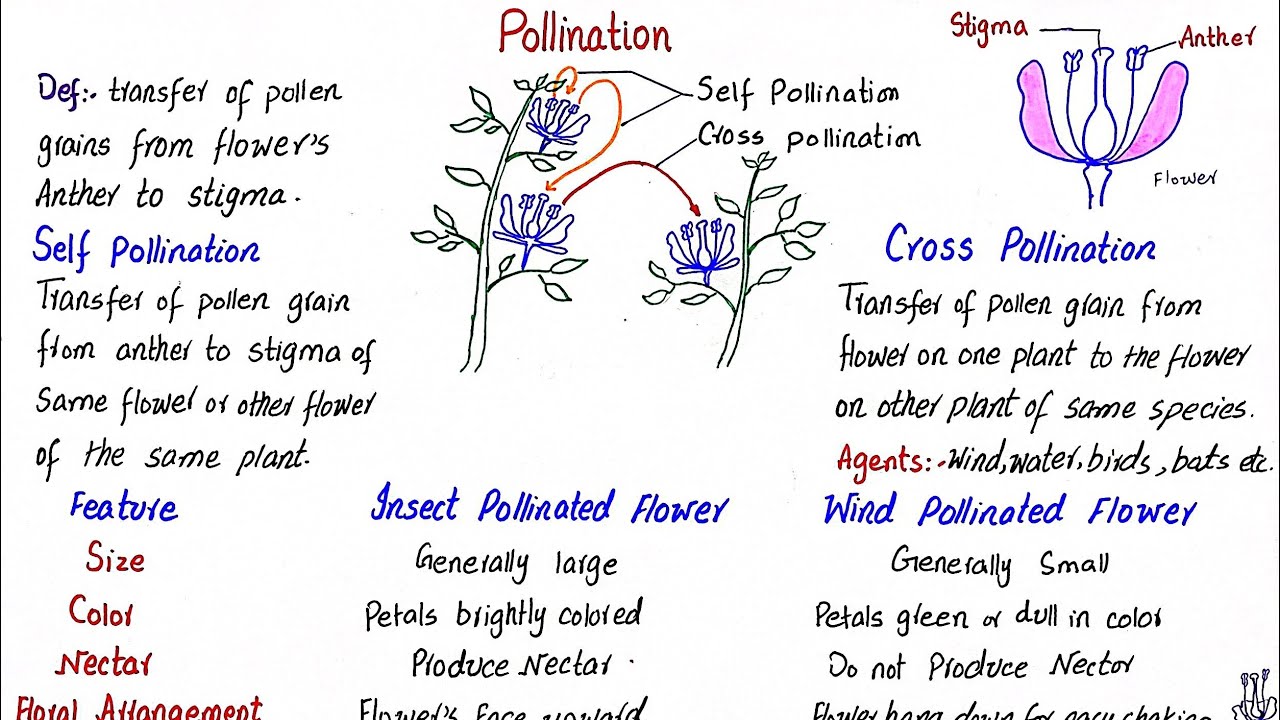 Pollination
Stigma
Anther
Flower
Def:- transfer of pollen
grains from flower's
Anther to stigma.
Self Pollination
Cross pollination
Self Pollination
Transfer of pollen grain
from anther to stigma of
Same flower or other flower
of the same plant.
Cross Pollination
Transfer of pollen grain from
flower on one plant to the flower
on other plant of same species.
Agents:- Wind, water, birds, bats etc.
Feature Insect Pollinated Flower Wind Pollinated Flower
Size Generally large Generally Small
Color Petals brightly colored Petals green or dull in color
Nectar Produce Nectar. Do not Produce Nector
Floral Arrangement Flower's face upward Flower hang down for easy shaking